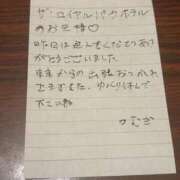 ザ・ロイヤルパークホテル
のお客様♡
昨日は
がとうございました
東京からの出張おつかれ
さまでした。ゆっくり休んで
下さいね
つむぎ